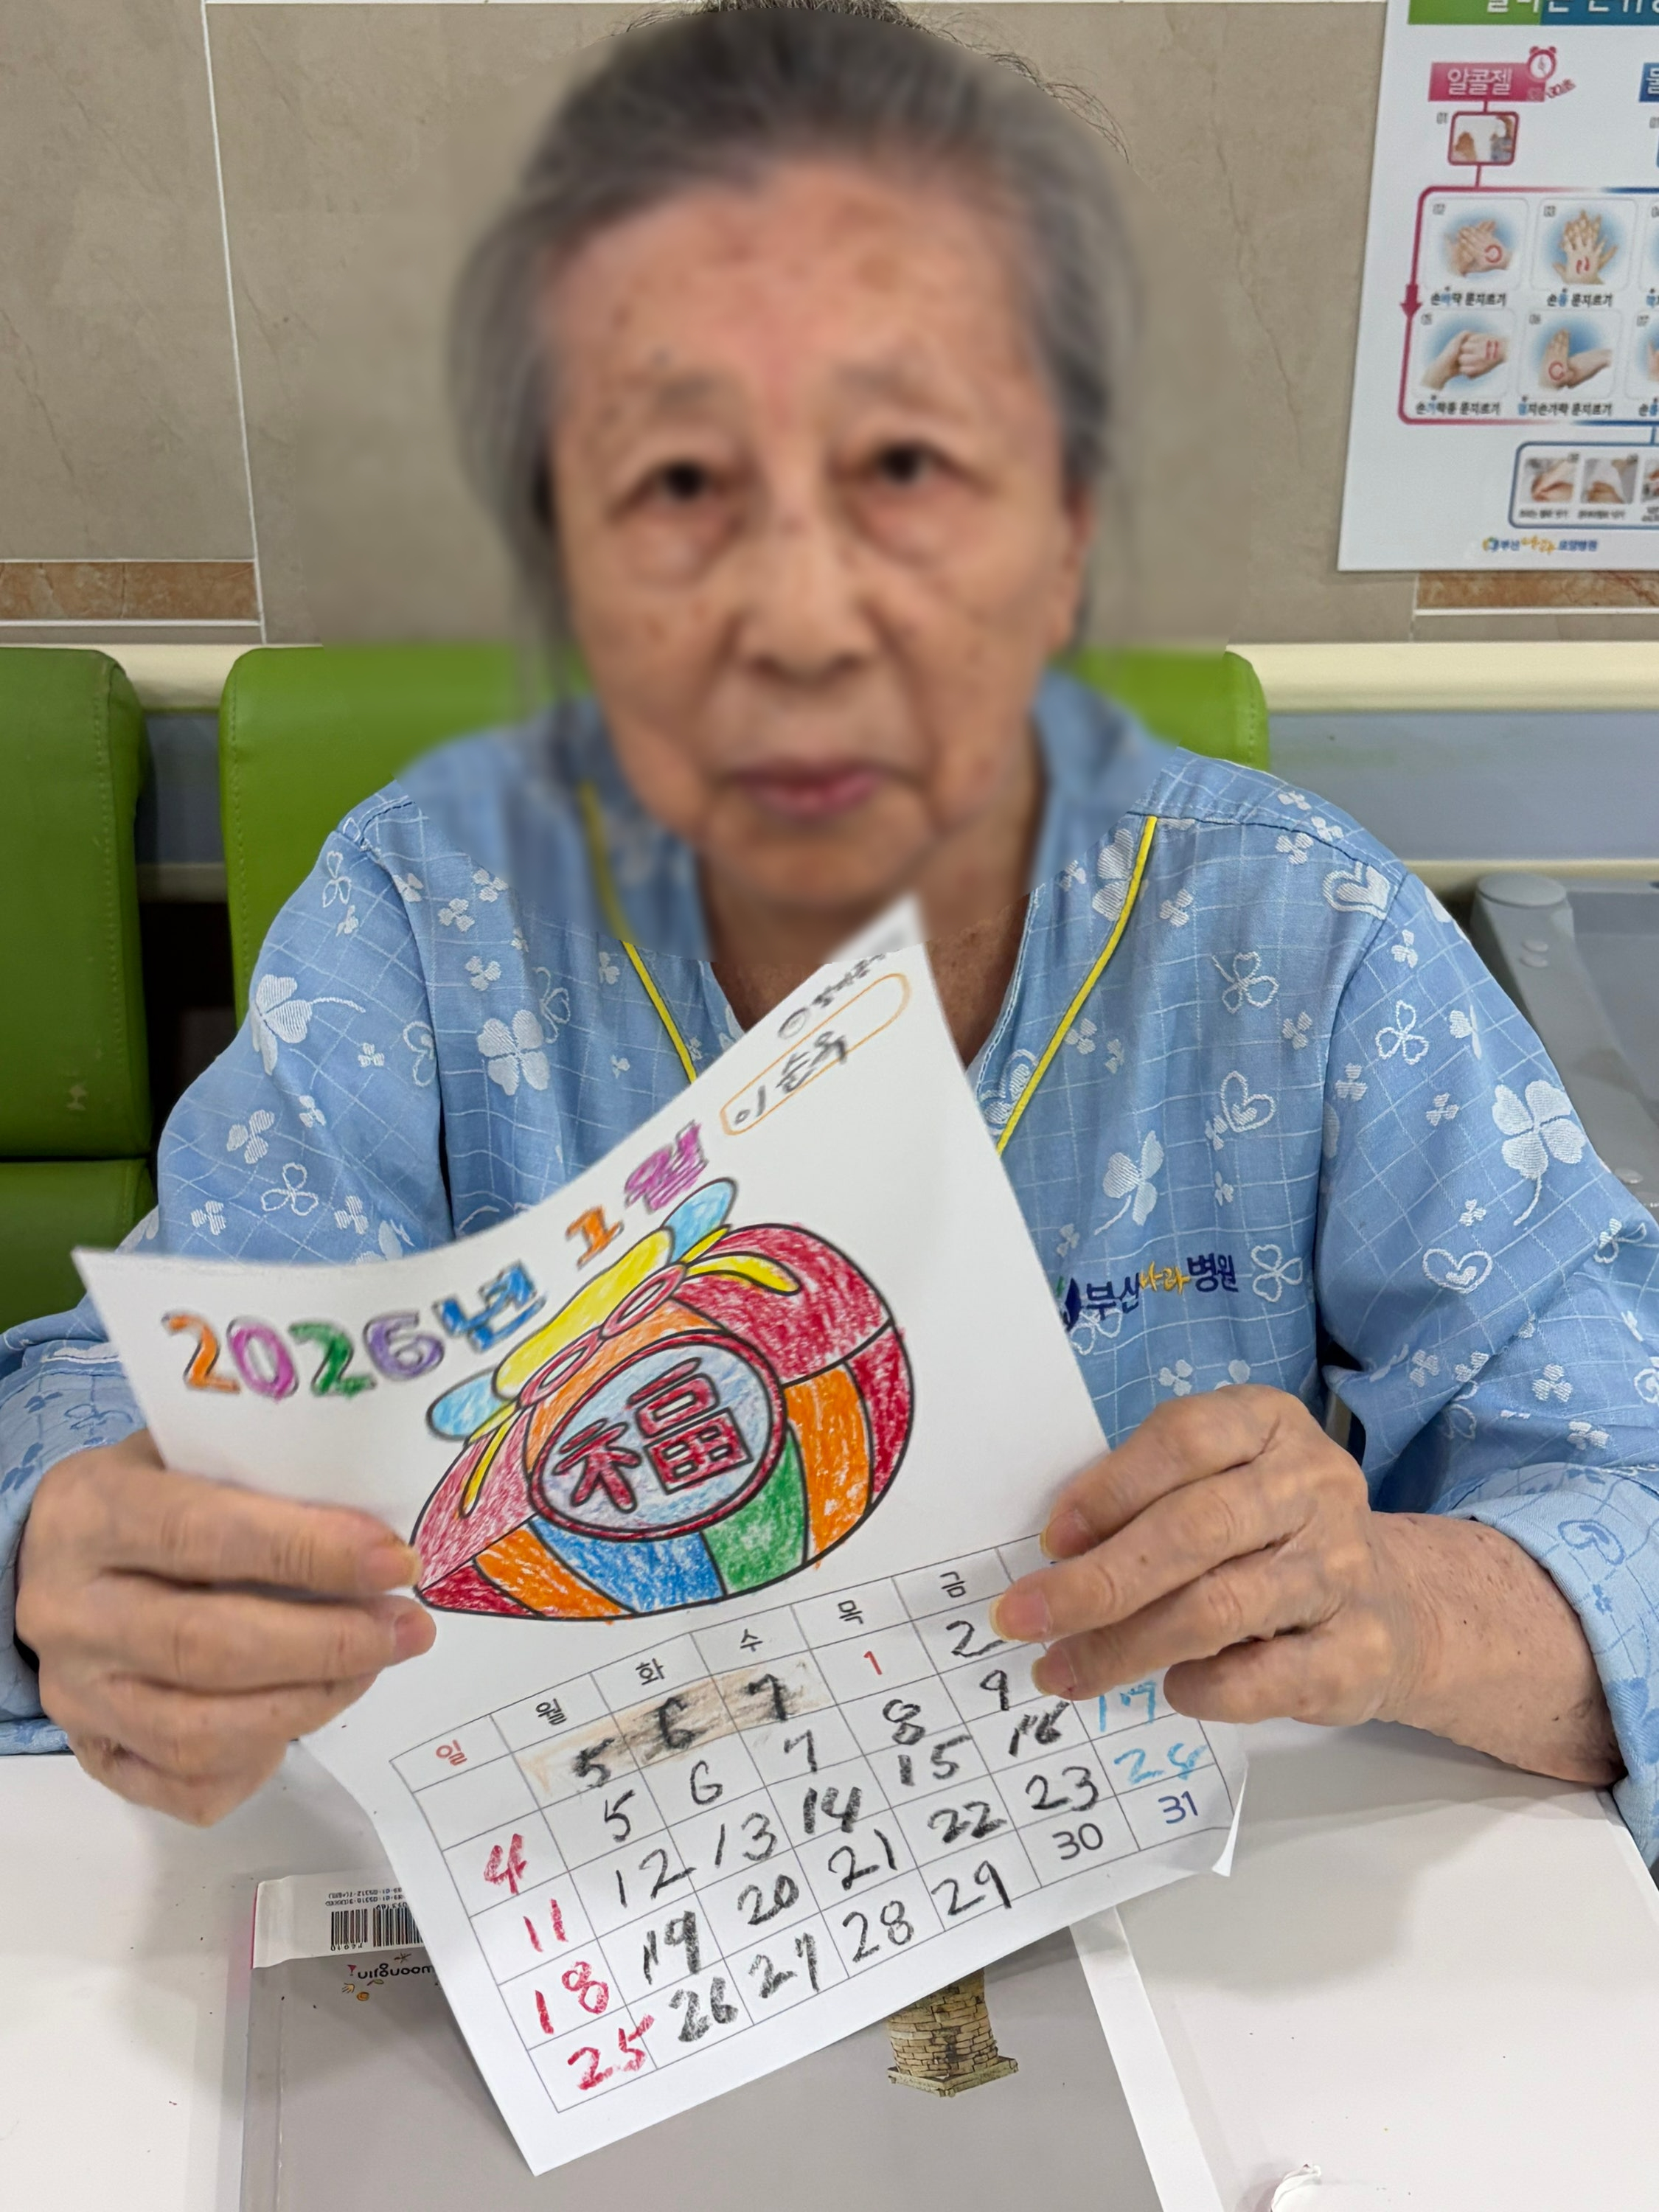 알콜젤
손바닥 문지르기
손등 문지르기
손가락등 문지르기
엄지손가락 문지르기
부산나라요양병원
이순옥
2026년 1월
福
부산나라병원
일 월 화 수 목 금
5 6 7 1 2
4 5 6 7 8 9
11 12 13 14 15 16 17
18 19 20 21 22 23 24
25 26 27 28 29 30 31
woongjin